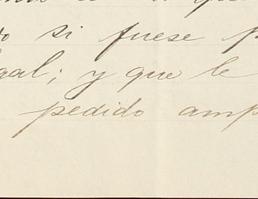 si fuese
gal; y que le
pedido amp